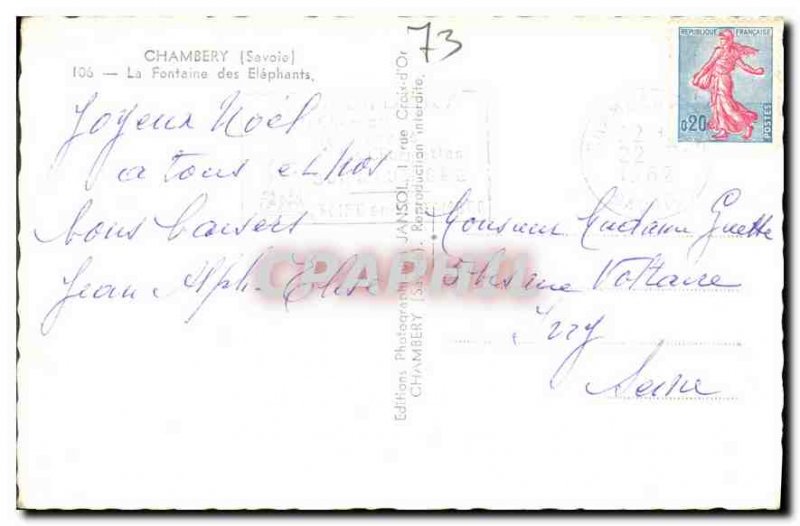 CHAMBERY (Savoie)
106 — La Fontaine des Eléphants.
73
REPUBLIQUE FRANÇAISE
0,20
POSTES
Joyeux Noël
a tous et Nos
bons baisers
Jean Alph. Elise
Editions Photographiques JANSOL, rue Croix-d'Or
CHAMBERY Reproduction interdite.
Monsieur Madame Guette
rue Voltaire
Ivry
Seine
CPAPHIL